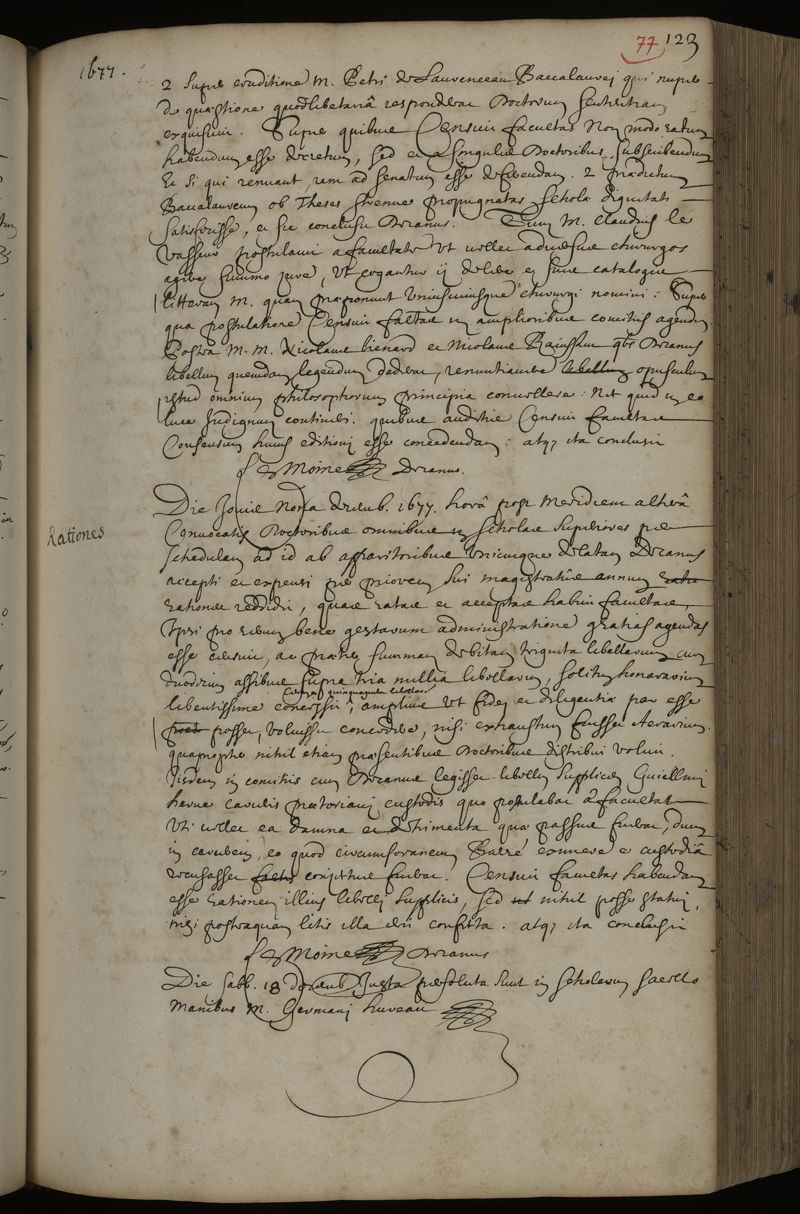 77 123
1677.
2 super eruditione M. Petri de Lauvenceau Baccalaurej qui nuper
de quæstione quodlibetariâ responderat Doctorum sententiam
exquisivit. Super quibus Censuit facultas Non modo ratum
habendum esse decretum, sed et a singulis Doctoribus subscribendum
Et si qui renuant, rem ad senatum esse deferendam. 2 prædictum
Baccalaureum ob Theses strenue propugnatas scholæ dignitati
satisfecisse, et sic conclusit Decanus. Tum M. Claudius le
Vasseur postulavit a facultate Ut vellet adversus chirurgos
agere summo jure, Ut cogantur ij delere ex suo catalogue
litteram M. quam præponunt Uniuscuiusque chirurgi nomini: Super
qua postulatione Censuit facultas in amplioribus comitiis agendum
Postea M. M. Nicolaus lienard et Nicolaus Rainssant qbs Decanus
libellum quemdam legendum dederat, renuntiavere libellum opusculum
istud omnium philosophorum principia convellere: Nec quid in eo
luce Indignum contineri. quibus auditis Censuit facultas
Consensum huius editioni esse concedendum: atq; ita conclusit
Le Moine Decanus.
Rationes
Die Jovis Nona decemb. 1677. horâ post Meridiem alterâ
Convocatis Doctoribus omnibus in scholas superiores per
schedulam ad id ab apparitoribus Unicuique delatam Decanus
accepti et expensi per priorem sui magistratûs annum ratio
rationes reddidit, quas ratas et acceptas habuit facultas,
Ipsi pro rerum bene gestarum administratione gratias agendas
esse censuit, ac præter summam debitam triginta libellarum cum
duodecim assibus supra tria millia librarum, solitum honorarium
Citra quinquaginta libellas
libentissime concessit, amplius Ut fidei et diligentiæ par esse
posset, voluisse concedere, nisi exhaustum fuisset Aerarium.
quapropter nihil etiam præsentibus Doctoribus distribui voluit.
Iisdem in comitiis cum Decanus legisset libellum supplicem Guillelmi
havue carceris prætoriani custodis quo postulabat à facultate
Uti vellet ea damna et detrimenta quæ passus fuerat, dum
in carcerem, eo quod circumforaneum Barré exire e custodiâ
conjectus fuerat. Censuit facultas habendam
esse rationem illius libelli supplicis, sed nihil posse statui,
nisi postquam litis illa erit confecta. atq; ita conclusit
Le Moine Decanus
Die sabb. 18 Decemb. Juxta persoluta sunt in scholarum sacello
Manibus M. Germani hureau